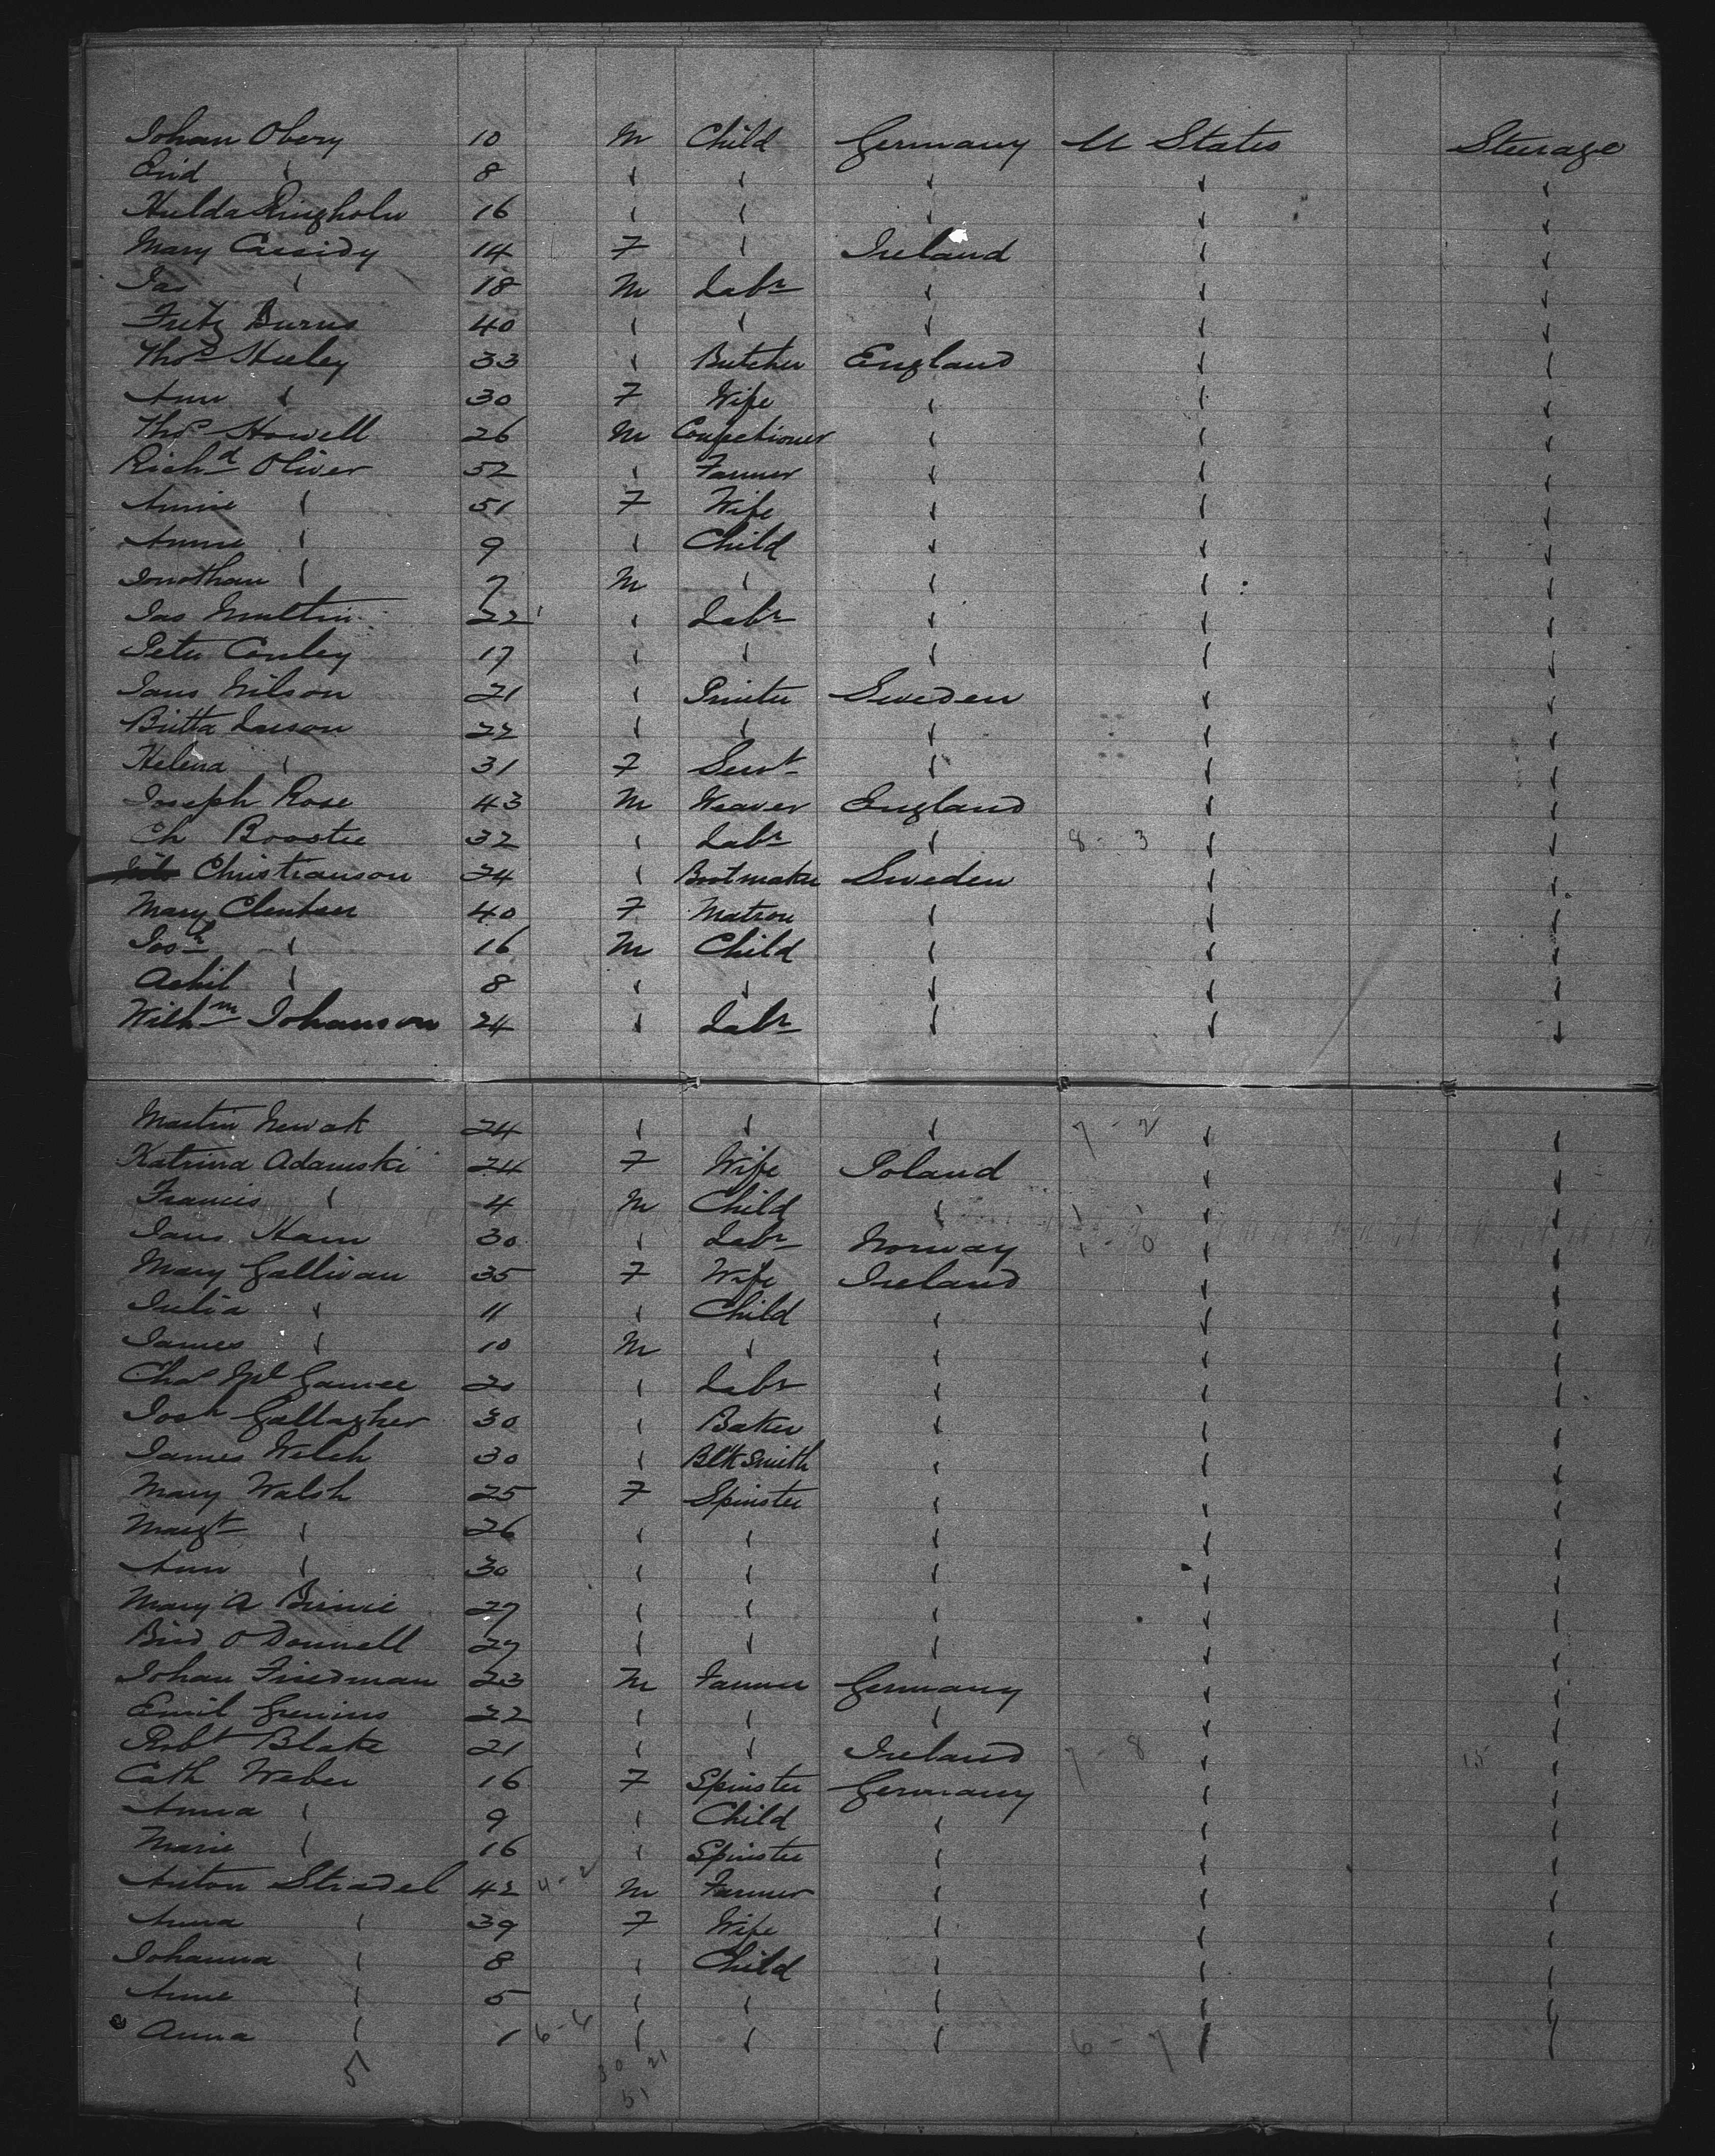 Johan Obery 10 M Child Germany U States Steerage
Erid " 8 " " " " "
Hulda Ringholm 16 " " " " "
Mary Cassidy 14 F " Ireland " "
Jas " 18 M Labr " " "
Fritz Burns 40 " " " " "
Thos Heeley 33 " Butcher England " "
Ann " 30 F Wife " " "
Thos Howell 26 M Confectioner " " "
Richd Oliver 52 " Farmer " " "
Annie " 51 F Wife " " "
Annie " 9 " Child " " "
Jonathan " 7 M " " " "
Jas 22 " Labr " " "
Peter Conley 17 " " " " "
Jans Nilson 21 " Printer Sweden " "
Britta Larson 22 " " " " "
Helena " 31 F Servt " " "
Joseph Rose 43 M Weaver England " "
Ch 32 " Labr " 8 - 3 " "
Christianson 24 " Bootmaker Sweden " "
Mary 40 F Matron " " "
Josh " 16 M Child " " "
Achil " 8 " " " " "
Wilhm Johanson 24 " Labr " " "
Martin Newak 24 " " " 7 - 2 " "
Katrina Adamski 24 F Wife Poland " "
Francis " 4 M Child " " "
Jans Ham 30 " Labr Norway 1 - 0 " "
Mary Gallivan 35 F Wife Ireland " "
Julia " 11 " Child " " "
James " 10 M " " " "
Chas 20 " Labr " " "
Josh Gallagher 30 " Baker " " "
James Welch 30 " Blk Smith " " "
Mary Walsh 25 F Spinster " " "
Margt " 26 " " " " "
Ann " 30 " " " " "
Mary A Birnie 27 " " " " "
Brid O Donnell 27 " " " " "
Johan Friedman 23 M Farmer Germany " "
Emil 22 " " " " "
Robt Blake 21 " " Ireland 7 - 8 " 15 "
Cath Weber 16 F Spinster Germany " "
Anna " 9 " Child " " "
Marie " 16 " Spinster " " "
Anton Stradel 42 4-2 M Farmer " " "
Anna " 39 F Wife " " "
Johanna " 8 " Child " " "
Anne " 5 " " " " "
Anna " 1 6-6 " " " 6 - 7 " "
5 30 21
51